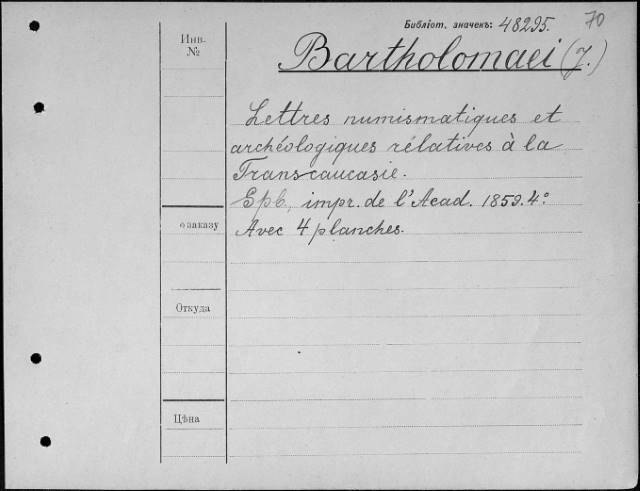 Библіот. значекъ: 48295. 70
Инв.
№
Bartholomaei (J.)
Lettres numismatiques et
archéologiques rélatives à la
Transcaucasie.
Spb., impr. de l'Acad. 1859. 4°
Avec 4 planches.
о заказу
Откуда
Цѣна